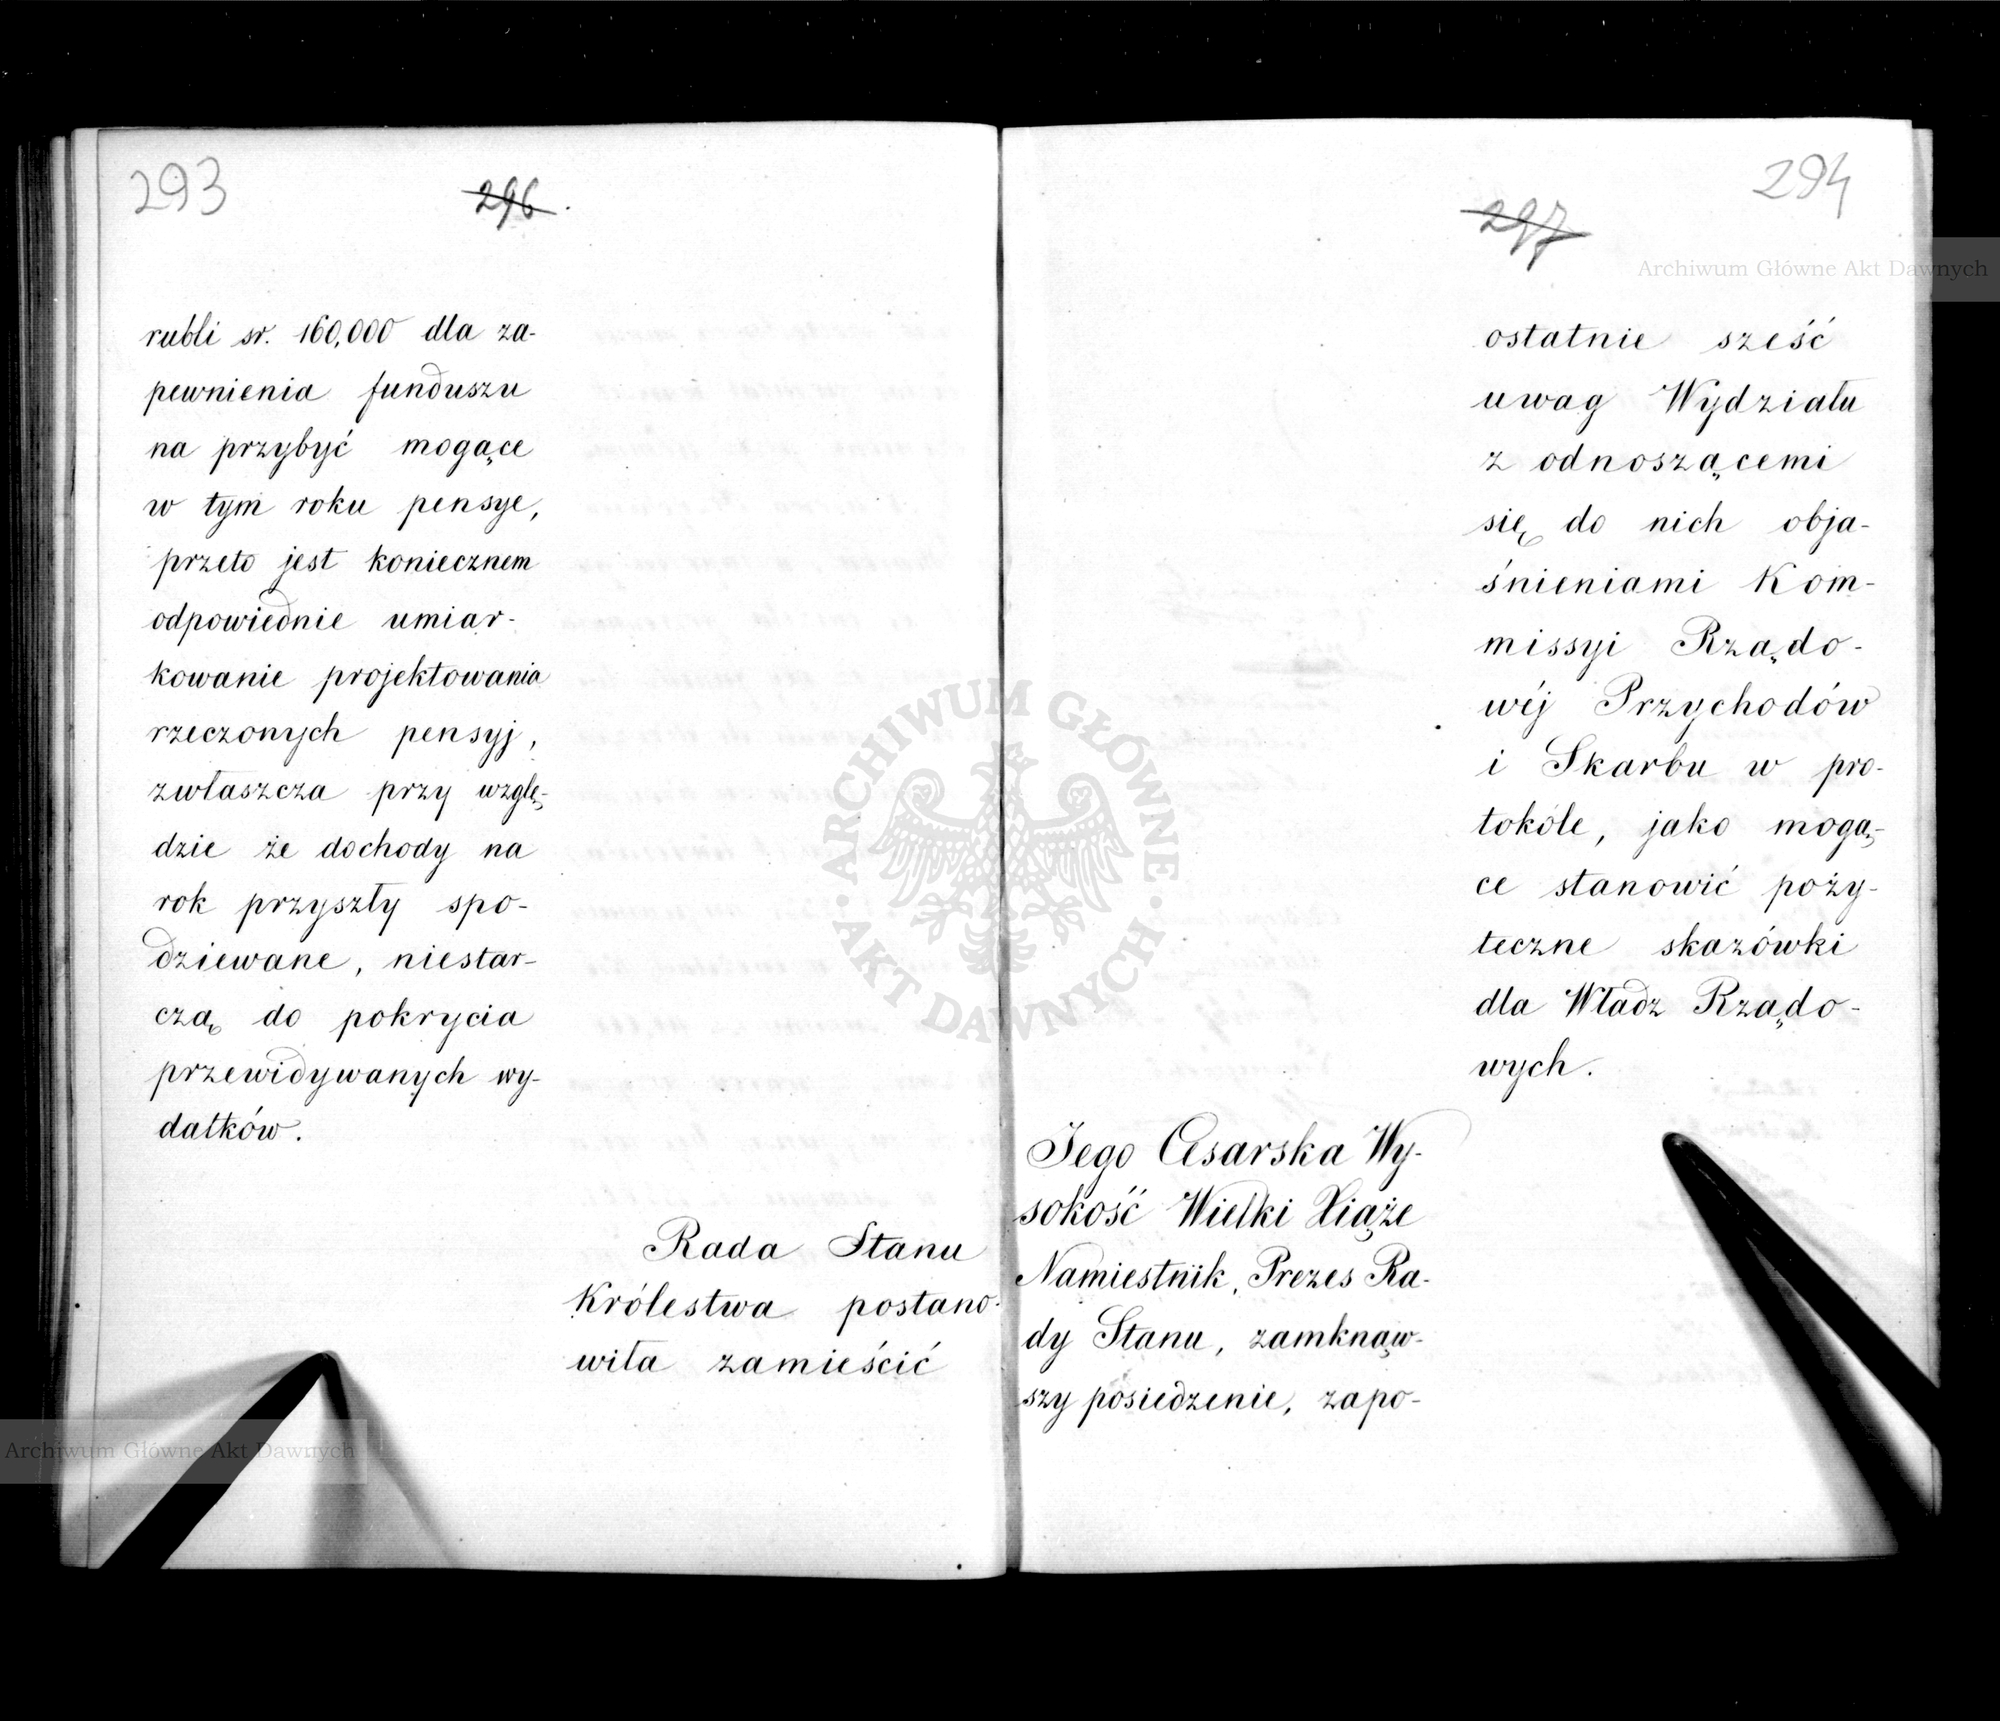 293
296.
rubli sr. 160,000 dla za-
pewnienia funduszu
na przybyć mogące
w tym roku pensye,
przeto jest koniecznem
odpowiednie umiar-
kowanie projektowania
rzeczonych pensyj,
zwłaszcza przy wzglę-
dzie że dochody na
rok przyszły spo-
dziewane, niestar-
czą do pokrycia
przewidywanych wy-
datków.
Rada Stanu
Królestwa postano-
wiła zamieścić
294
297
ostatnie sześć
uwag Wydziału
z odnoszącemi
się do nich obja-
śnieniami Kom-
missyi Rządo-
wéj Przychodów
i Skarbu w pro-
tokóle, jako mogą-
ce stanowić poży-
teczne skazówki
dla Władz Rządo-
wych.
Jego Cesarska Wy-
sokość Wielki Xiąże
Namiestnik, Prezes Ra-
dy Stanu, zamknąw-
szy posiedzenie, zapo-
Archiwum Główne Akt Dawnych
Archiwum Główne Akt Dawnych
ARCHIWUM GŁÓWNE
AKT DAWNYCH